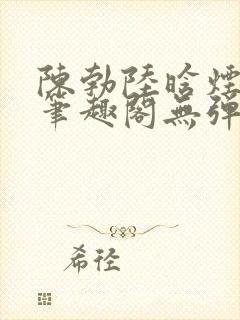 陳勃陸晗煙
筆趣閣無彈
希徑